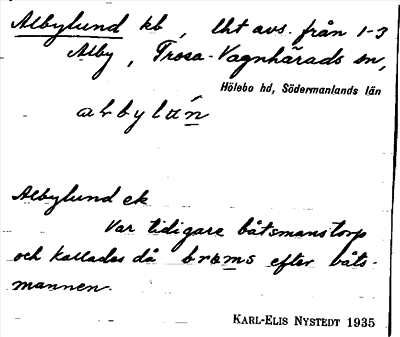 Albylund kb, lht avs. från 1-3
Alby, Trosa-Vagnhärads sn,
Hölebo hd, Södermanlands län
albylún
Albylund ek
Var tidigare båtsmanstorp
och kallades då brums efter båts-
mannen.
KARL-ELIS NYSTEDT 1935